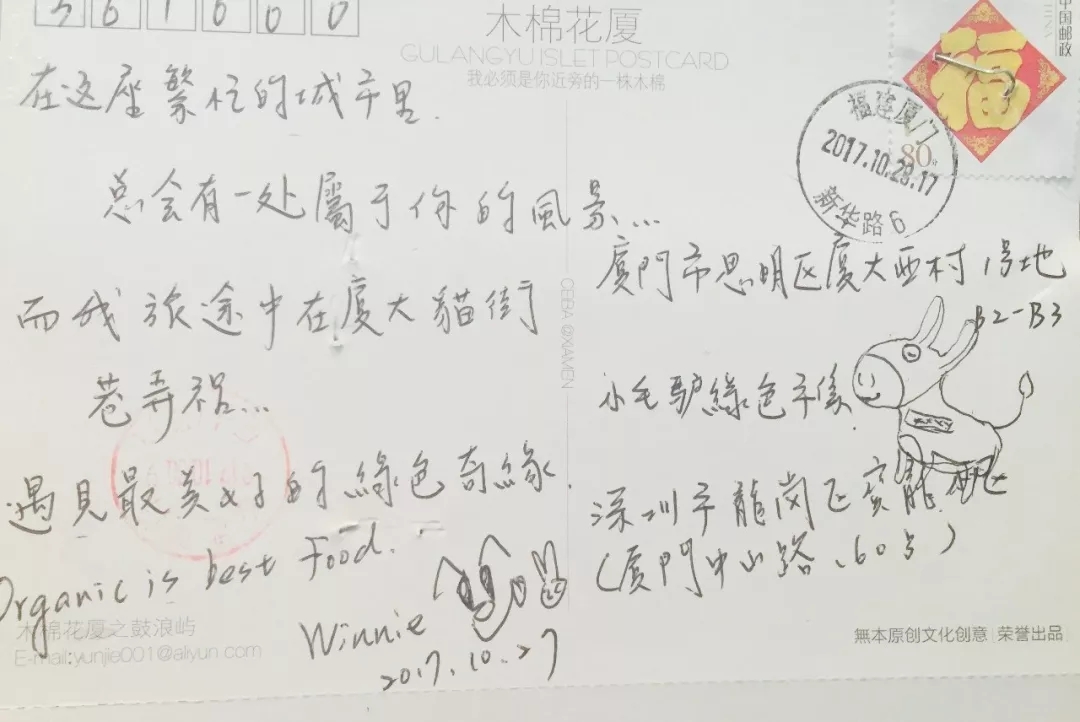 361000
木棉花厦
GULANGYU ISLET POSTCARD
我必须是你近旁的一株木棉
中国邮政
CHINA
福
80
福建厦门
2017.10.28.17
新华路6
在这座繁忙的城市里.
总会有一处屬于你的風景...
而我旅途中在厦大貓街
巷弄裡...
遇見最美好的綠色奇緣.
Organic is best Food.
Winnie
2017.10.27
木棉花厦之鼓浪屿
E-mail:yunjie001@aliyun.com
CEIBA @XIAMEN
廈門市思明区廈大西村1号地
B2-B3
小毛驴綠色
深圳市龍岗区宝龍
(廈門中山路、60号)
無本原创文化创意 荣誉出品